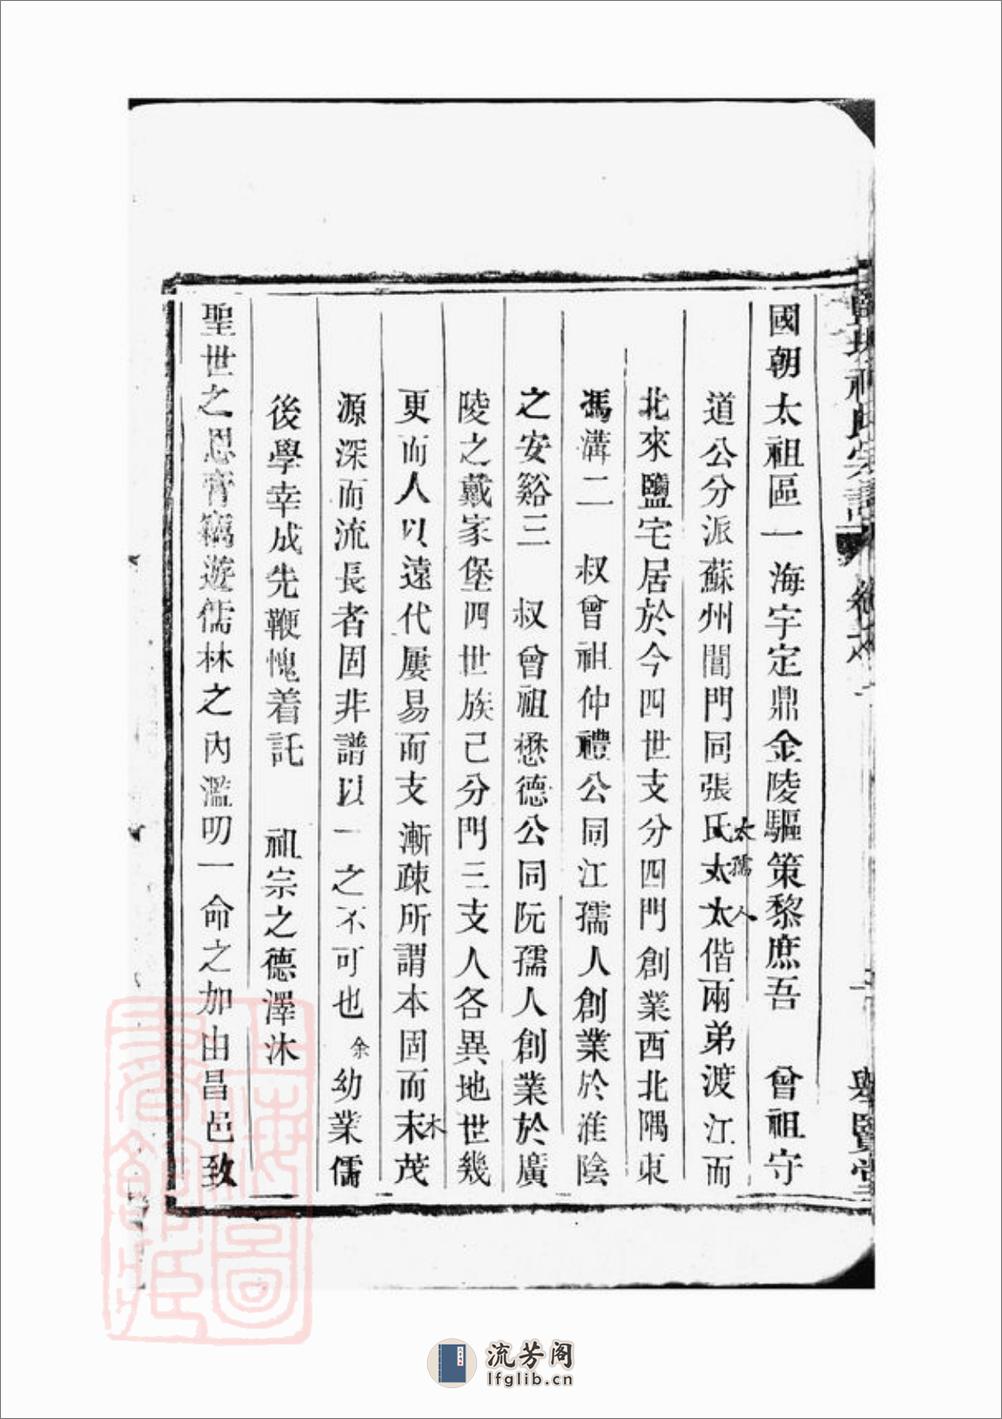 國朝太祖區一海宇定鼎金陵驅策黎庶吾　曾祖守
道公分派蘇州閶門同張氏太太偕兩弟渡江而
太孺人
北來鹽宅居於今四世支分四門創業西北隅東
馮溝二　叔曾祖仲禮公同江孺人創業於淮陰
之安谿三　叔曾祖懋德公同阮孺人創業於廣
陵之戴家堡四世族已分門三支人各異地世幾
更而人以遠代屢易而支漸疎所謂本固而末茂
木
源深而流長者固非譜以一之不可也余幼業儒
後學幸成先鞭愧着託　祖宗之德澤沐
聖世之恩膏竊遊儒林之內濫叨一命之加由昌邑致
氏宗譜
流芳阁
lfglib.cn